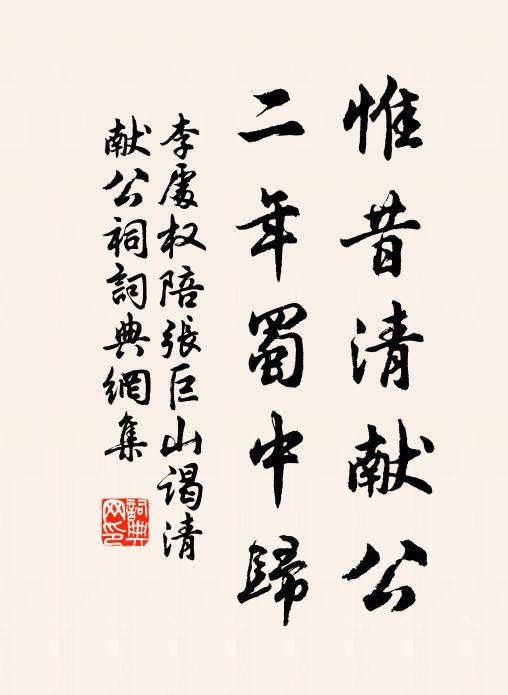 惟昔清献公
二年蜀中歸
李處权陪張巨山谒清
献公祠詞典網集
詞典
网印